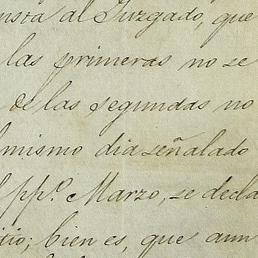 al Juzgado, que
las primeras no se
de las segundas no
mismo dia señalado
pp.º Marzo, se decla
bien es, que aun